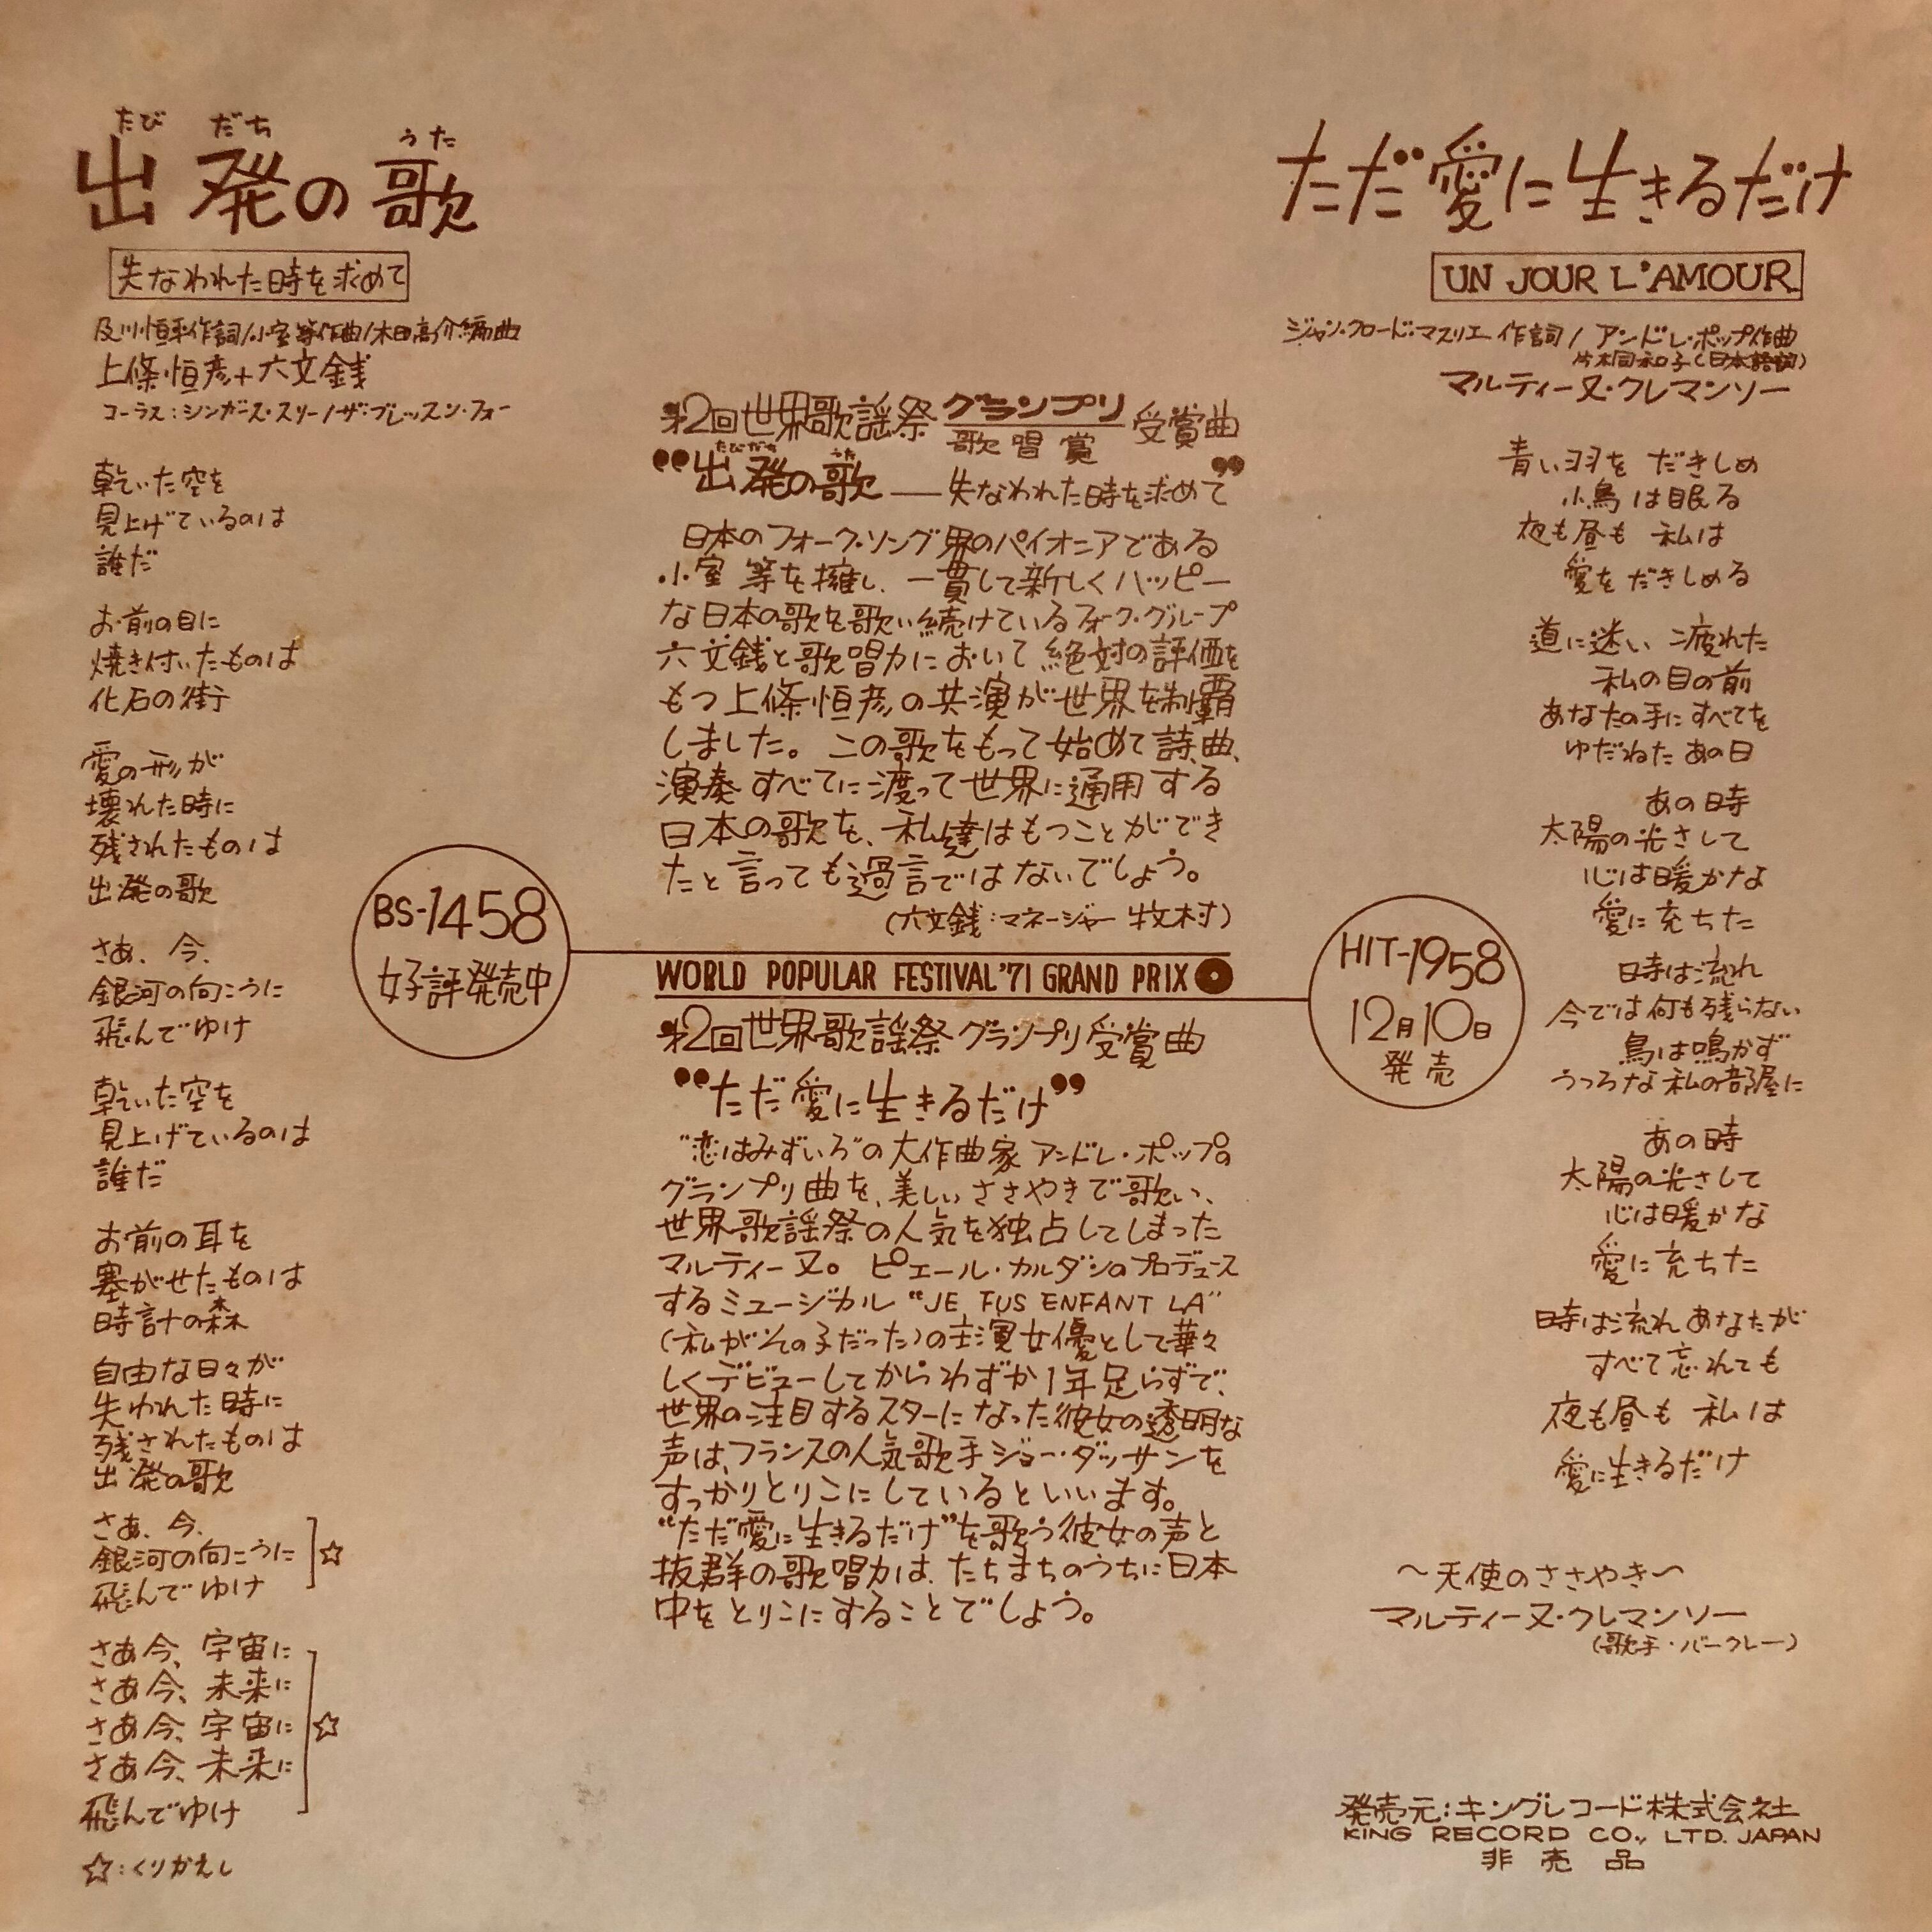 たびだち うた
出発の歌
失なわれた時を求めて
及川恒平作詞/小室等作曲/木田高介編曲
上條恒彦+六文銭
コーラス:シンガーズ・スリー/ザ・ブレッスン・フォー
乾いた空を
見上げているのは
誰だ
お前の目に
焼き付いたものは
化石の街
愛の形が
壊れた時に
残されたものは
出発の歌
さあ、今、
銀河の向こうに
飛んでゆけ
乾いた空を
見上げているのは
誰だ
お前の耳を
塞がせたものは
時計の森
自由な日々が
失われた時に
残されたものは
出発の歌
さあ、今、
銀河の向こうに
飛んでゆけ
☆
さあ今、宇宙に
さあ今、未来に
さあ今、宇宙に
さあ今、未来に
飛んでゆけ
☆
☆:くりかえし
第2回世界歌謡祭 グランプリ 歌唱賞 受賞曲
たびだち うた
"出発の歌——失なわれた時を求めて"
日本のフォーク・ソング界のパイオニアである
小室 等を擁し、一貫して新しくハッピー
な日本の歌を歌い続けているフォーク・グループ
六文銭と歌唱力において絶対の評価を
もつ上條恒彦の共演が世界を制覇
しました。この歌をもって始めて詩、曲、
演奏すべてに渡って世界に通用する
日本の歌を、私達はもつことができ
たと言っても過言ではないでしょう。
(六文銭:マネージャー 牧村)
BS-1458
好評発売中
WORLD POPULAR FESTIVAL '71 GRAND PRIX
HIT-1958
12月10日
発売
第2回世界歌謡祭グランプリ受賞曲
"ただ愛に生きるだけ"
"恋はみずいろ"の大作曲家アンドレ・ポップの
グランプリ曲を、美しいささやきで歌い、
世界歌謡祭の人気を独占してしまった
マルティーヌ。ピエール・カルダンのプロデュース
するミュージカル "JE FUS ENFANT LA"
(私がその子だった)の主演女優として華々
しくデビューしてからわずか1年足らずで、
世界の注目するスターになった彼女の透明な
声は、フランスの人気歌手ジョー・ダッサンを
すっかりとりこにしているといいます。
"ただ愛に生きるだけ"を歌う彼女の声と
抜群の歌唱力は、たちまちのうちに日本
中をとりこにすることでしょう。
ただ愛に生きるだけ
UN JOUR L'AMOUR
ジャン・クロード・マスリエ作詞/アンドレ・ポップ作曲
片桐和子(日本語詞)
マルティーヌ・クレマンソー
青い羽を だきしめ
小鳥は眠る
夜も昼も 私は
愛を だきしめる
道に迷い 疲れた
私の目の前
あなたの手に すべてを
ゆだねた あの日
あの時
太陽の光さして
心は暖かな
愛に充ちた
時は流れ
今では何も残らない
鳥は鳴かず
うつろな私の部屋に
あの時
太陽の光さして
心は暖かな
愛に充ちた
時は流れ あなたが
すべて忘れても
夜も昼も 私は
愛に生きるだけ
~天使のささやき~
マルティーヌ・クレマンソー
(歌手・バークレー)
発売元:キングレコード株式会社
KING RECORD CO., LTD. JAPAN
非売品